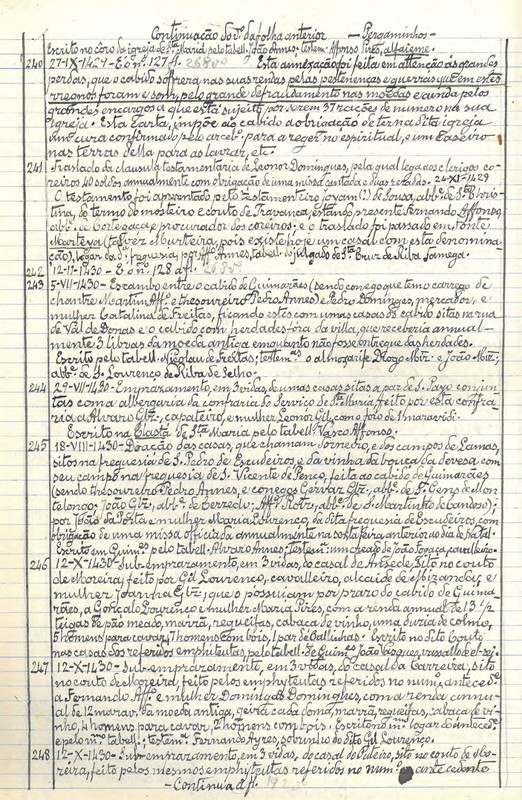 Continuação do vº da folha anterior — Pergaminhos —
Escrito no côro da igreja de Stª Maria pelo tabell. João Annes. testem. Affonso Pires, alfaieme.
240 27-IX-1429 - E o nº 127 fl. 26800 Esta annexação foi feita em attenção ás grandes
perdas, que o cabido soffrera, nas suas rendas pelas pestenenças e guerras que em estes
rreonos foram e som, pelo grande defraudamento nas moedas e ainda pelos
grandes encargos a que está sujeito por serem 37 rações de numero na sua
igreja. Esta Carta, impõe ao cabido a obrigação de ter na dita igreja
um cura confirmado pelo arceb. para a reger no espiritual, e um Caseiro
nas terras della para as lavrar, etc.
241 Traslado da clausula testamentaria de Leonor Domingues, pela qual lega aos clerigos co-
reiros 40 soldos annualmente com obrigação de uma missa cantada e duas rezadas. 24-XI-1429
O testamento foi apresentado pelo testamenteiro Jovam (?) de Sousa, abb. de Stª Chris-
tina, do termo do mosteiro e couto de Travanca, estando presente Fernando Affonso,
abb. de Cortegaça e procurador dos coreiros; e o traslado foi passado em, fonte
Morteyra (talvez Murteira, pois existe hoje um casal com esta denomina-
ção), logar da dª freguesia, por Affº Annes, tabell. do julgado de Stª Cruz de Riba Tamega.
242 12-II-1430 - E o nº 128 fl. 26800
243 5-VII-1430 - Escambo entre o cabido de Guimarães (sendo conego que tem o carrego de
chantre Martim Affº e thesoureiro Pedro Annes) e Pedro Domingues, mercador, e
mulher Catalina de Freitas, ficando estes com umas casas do cabido sitas na rua
de Val de Donas e o cabido com herdades fóra da villa, que receberia annual-
mente 3 libras da moeda antiga emquanto não fosse entregue das herdades.
Escrito pelo tabell. Nicolau de Freitas; testem.as o almoxarife Diogo Miz. e João Miz.,
abb. de S. Lourenço de Riba de Selho.
244 29-VII-1430 - Emprazamento, em 3 vidas, de umas casas sitas a par de S. Payo conjun-
tas com a albergaria da confraria do Serviço de Stª Maria, feito por esta confra-
ria a Alvaro Glz., çapateiro, e mulher Leonor Gil, com o foro de 1 maravidi.
Escrito na Claasta de Stª Maria pelo tabell. Vasco Affonso.
245 18-VIII-1430 - Doação das casas, que chamam Torneiro, e dos campos de Lamas,
sitos na freguesia de S. Pedro de Escudeiros, e da vinha da bouça da devesa com
seu campo na freguesia de S. Vicente de Penço, feita ao cabido de Guimarães
(sendo thesoureiro Pedro Annes, e conegos Gervaz Glz., abb. de S. Gens de Mon-
telongo; João Glz., abb. de Cerredo; Affº Rodrz., abb. de S. Martinho de Candoso);
por João da Pósta e mulher Maria Lourenço, da dita freguesia de Escudeiros, com
obrigação de uma missa officiada annualmente na sexta feira anterior ao dia de natal.
Escrito em Guim.es pelo tabell. Alvaro Annes. Testem. um creado de João Fogaça, cavalleiro.
246 12-X-1430 - Sub-emprazamento, em 3 vidas, do casal de Ansede, sito no couto
de Moreira, feito por Gil Lourenço, cavalleiro, alcaide de Miranda, e
mulher Joanna Glz., que o possuiam por prazo do cabido de Guima-
rães, a Gonçalo Lourenço e mulher Maria Pires, com a renda annual de 13 ½
teigas de pão meado, marrã, regueifas, cabaça de vinho, uma duzia de colmo,
5 homens para cavar, 7 homens com bois, 1 par de gallinhas. Escrito no dito couto
nas casas dos referidos emphiteutas, pelo tabell. de Guim.es João Vasques, vassallo de el-rei.
247 12-X-1430 - Sub-emprazamento, em 3 vidas, do casal da Carreira, sito
no couto de Moreira, feito pelos emphyteutas referidos no num. anteced.
a Fernando Affº e mulher Domingas Domingues, com a renda annu-
al de 12 marav. da moeda antiga, geiria cada doma, marrã, regueifas, cabaça de vi-
nho, 4 homens para cavar, 2 homens com bois. Escrito no mº logar do anteced.
e pelo mº tabell.; testem. Fernando Ayres, sobrinho do dito Gil Lourenço.
248 12-X-1430 - Sub-emprazamento, em 3 vidas, do casal do Outeiro, sito no couto de Mo-
reira, feito pelos mesmos emphyteutas referidos no num. antecedente
— Continua a fl.